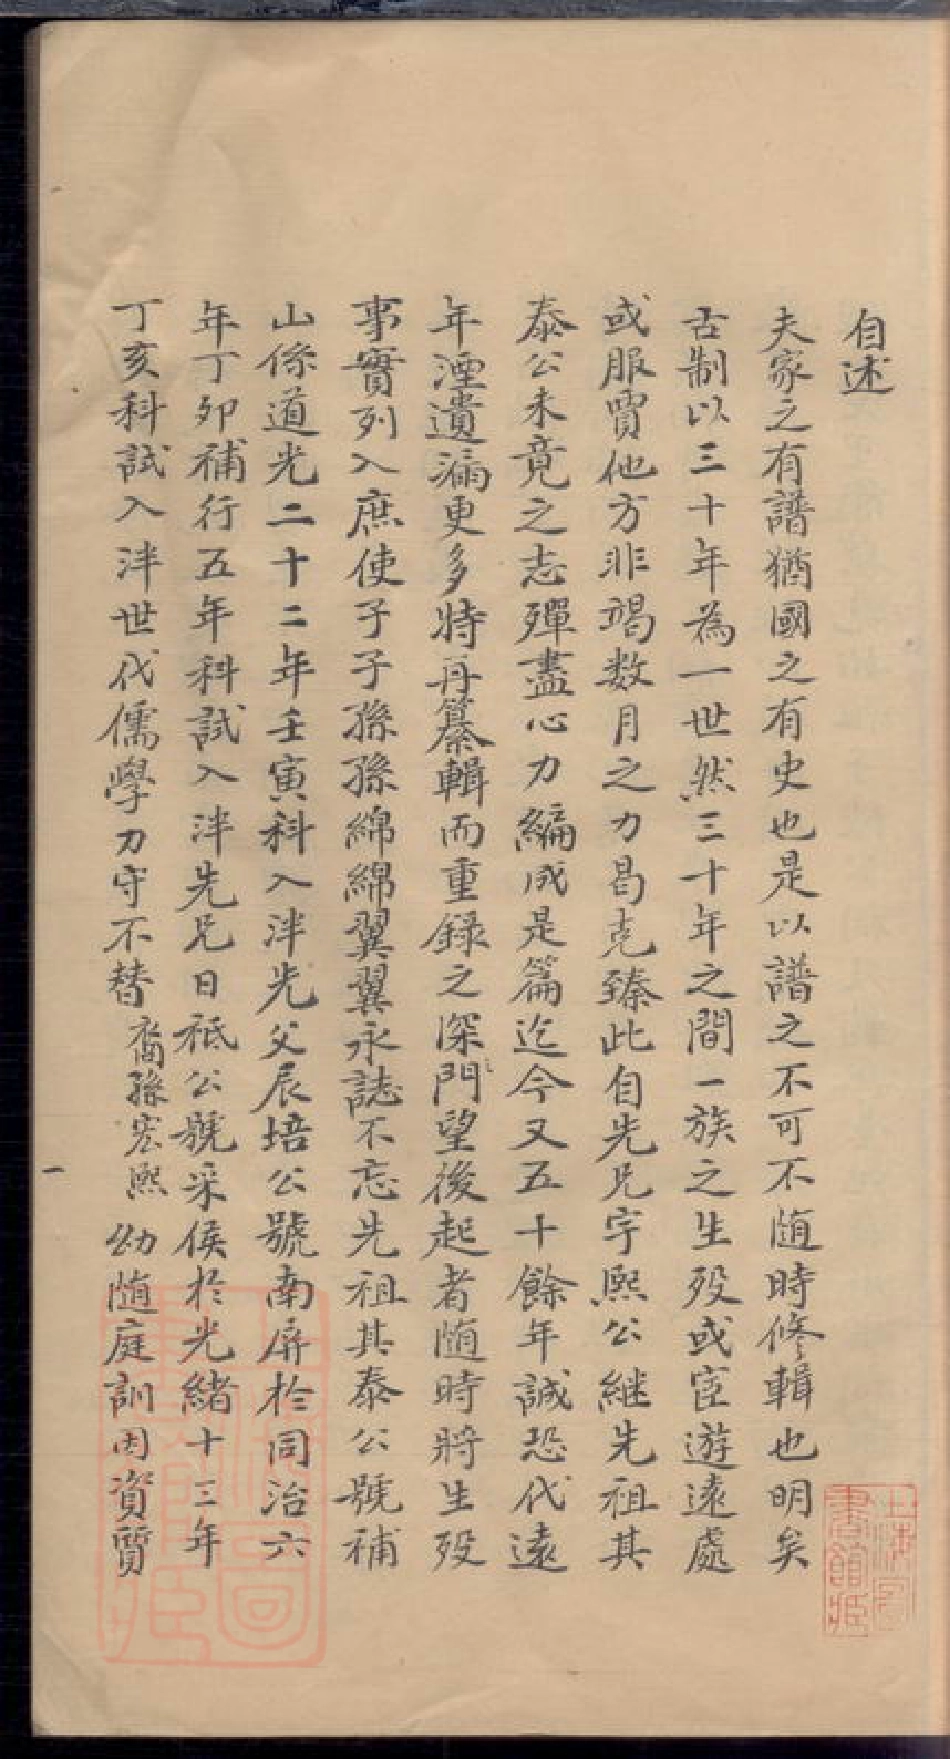 自述
夫家之有譜猶國之有史也是以譜之不可不随時修輯也明矣
古制以三十年為一世然三十年之間一族之生歿或宦遊遠處
或服賈他方非竭数月之力曷克臻此自先兄宇熙公継先祖其
泰公未竟之志殫盡心力編成是篇迄今又五十餘年誠恐代遠
年湮遺漏更多特再纂輯而重録之深門望後起者随時將生歿
事實列入庶使子子孫孫綿綿翼翼永誌不忘先祖其泰公號補
山係道光二十二年壬寅科入泮先父辰培公號南屏於同治六
年丁卯補行五年科試入泮先兄日祗公號采侯於光緒十三年
丁亥科試入泮世代儒學力守不替裔孫宏熙幼随庭訓因資質
一
上海圖書館藏